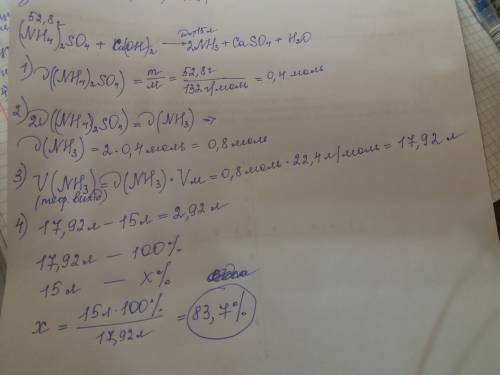 52,8г
(NH₄)₂SO₄ + Ca(OH)₂ → 2NH₃ + CaSO₄ + H₂O
1) ν((NH₄)₂SO₄) = m/M = 52,8г/132г/моль = 0,4 моль
2) 2ν((NH₄)₂SO₄) = ν(NH₃) ⇒
ν(NH₃) = 2·0,4 моль = 0,8 моль
3) V(NH₃) = ν(NH₃)·Vм = 0,8 моль·22,4 л/моль = 17,92 л
4) 17,92 л – 15 л = 2,92 л
17,92 л – 100%
15 л — x%
x = 15 л·100%/17,92 л = 83,7%